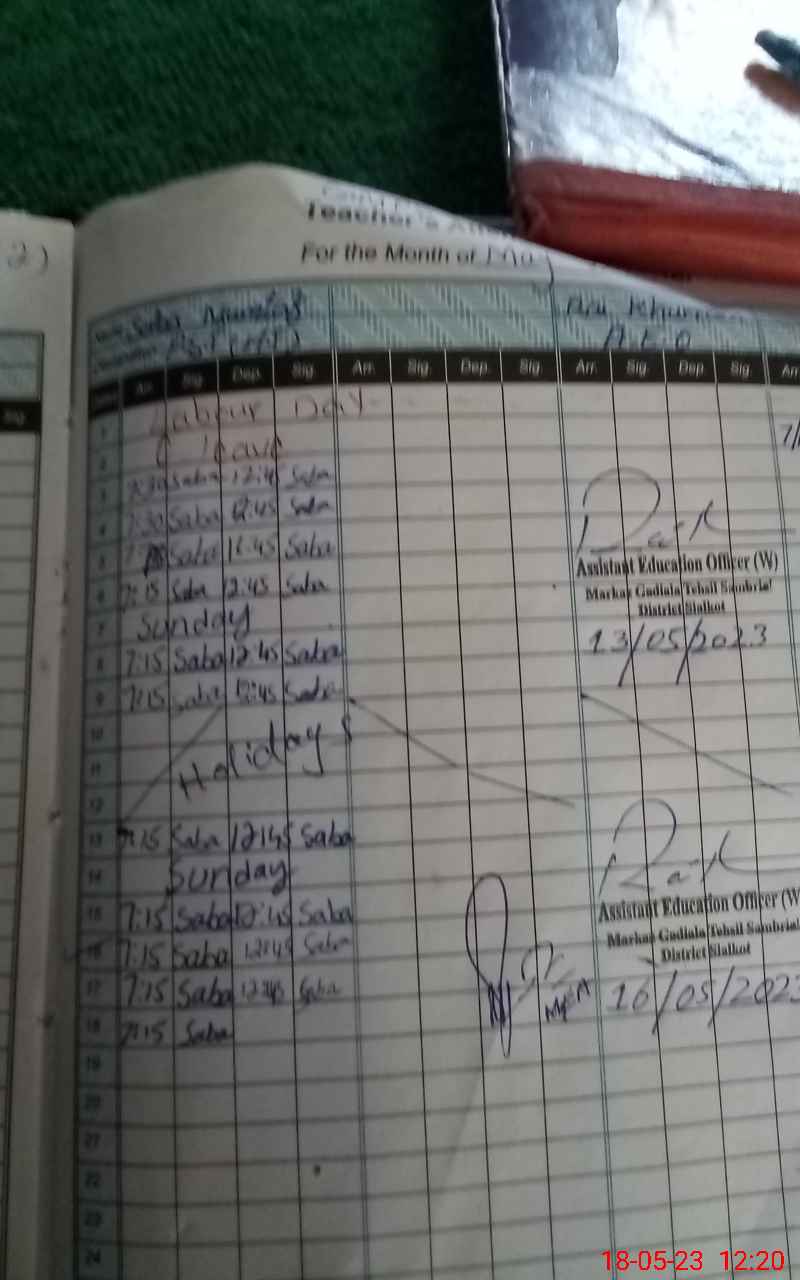 2)
Teacher's
For the Month of
Saba
A.E.O
Sig
Arr. Sig. Dep. Sig. Arr. Sig. Dep. Sig. Arr. Sig. Dep. Sig. Arr
1 Labour Day
2 C leave 7/
3 7:30 Saba 12:45 Saba
4 7:30 Saba 12:45 Saba
5 Saba 12:45 Saba
6 7:15 Saba 12:45 Saba
Assistant Education Officer (W)
Markaz Gadiala Tehsil Sambrial
District Sialkot
7 Sunday
13/05/2023
8 7:15 Saba 12:45 Saba
9 7:15 Saba 12:45 Saba
10
11 Holidays
12
13 7:15 Saba 12:45 Saba
14 Sunday
15 7:15 Saba 12:45 Saba
Assistant Education Officer (W
Markaz Gadiala Tehsil Sambrial
District Sialkot
16 7:15 Saba 12:45 Saba
17 7:15 Saba 12:45 Saba
MEA
16/05/2023
18 7:15 Saba
19
20
21
22
23
24
18-05-23 12:20